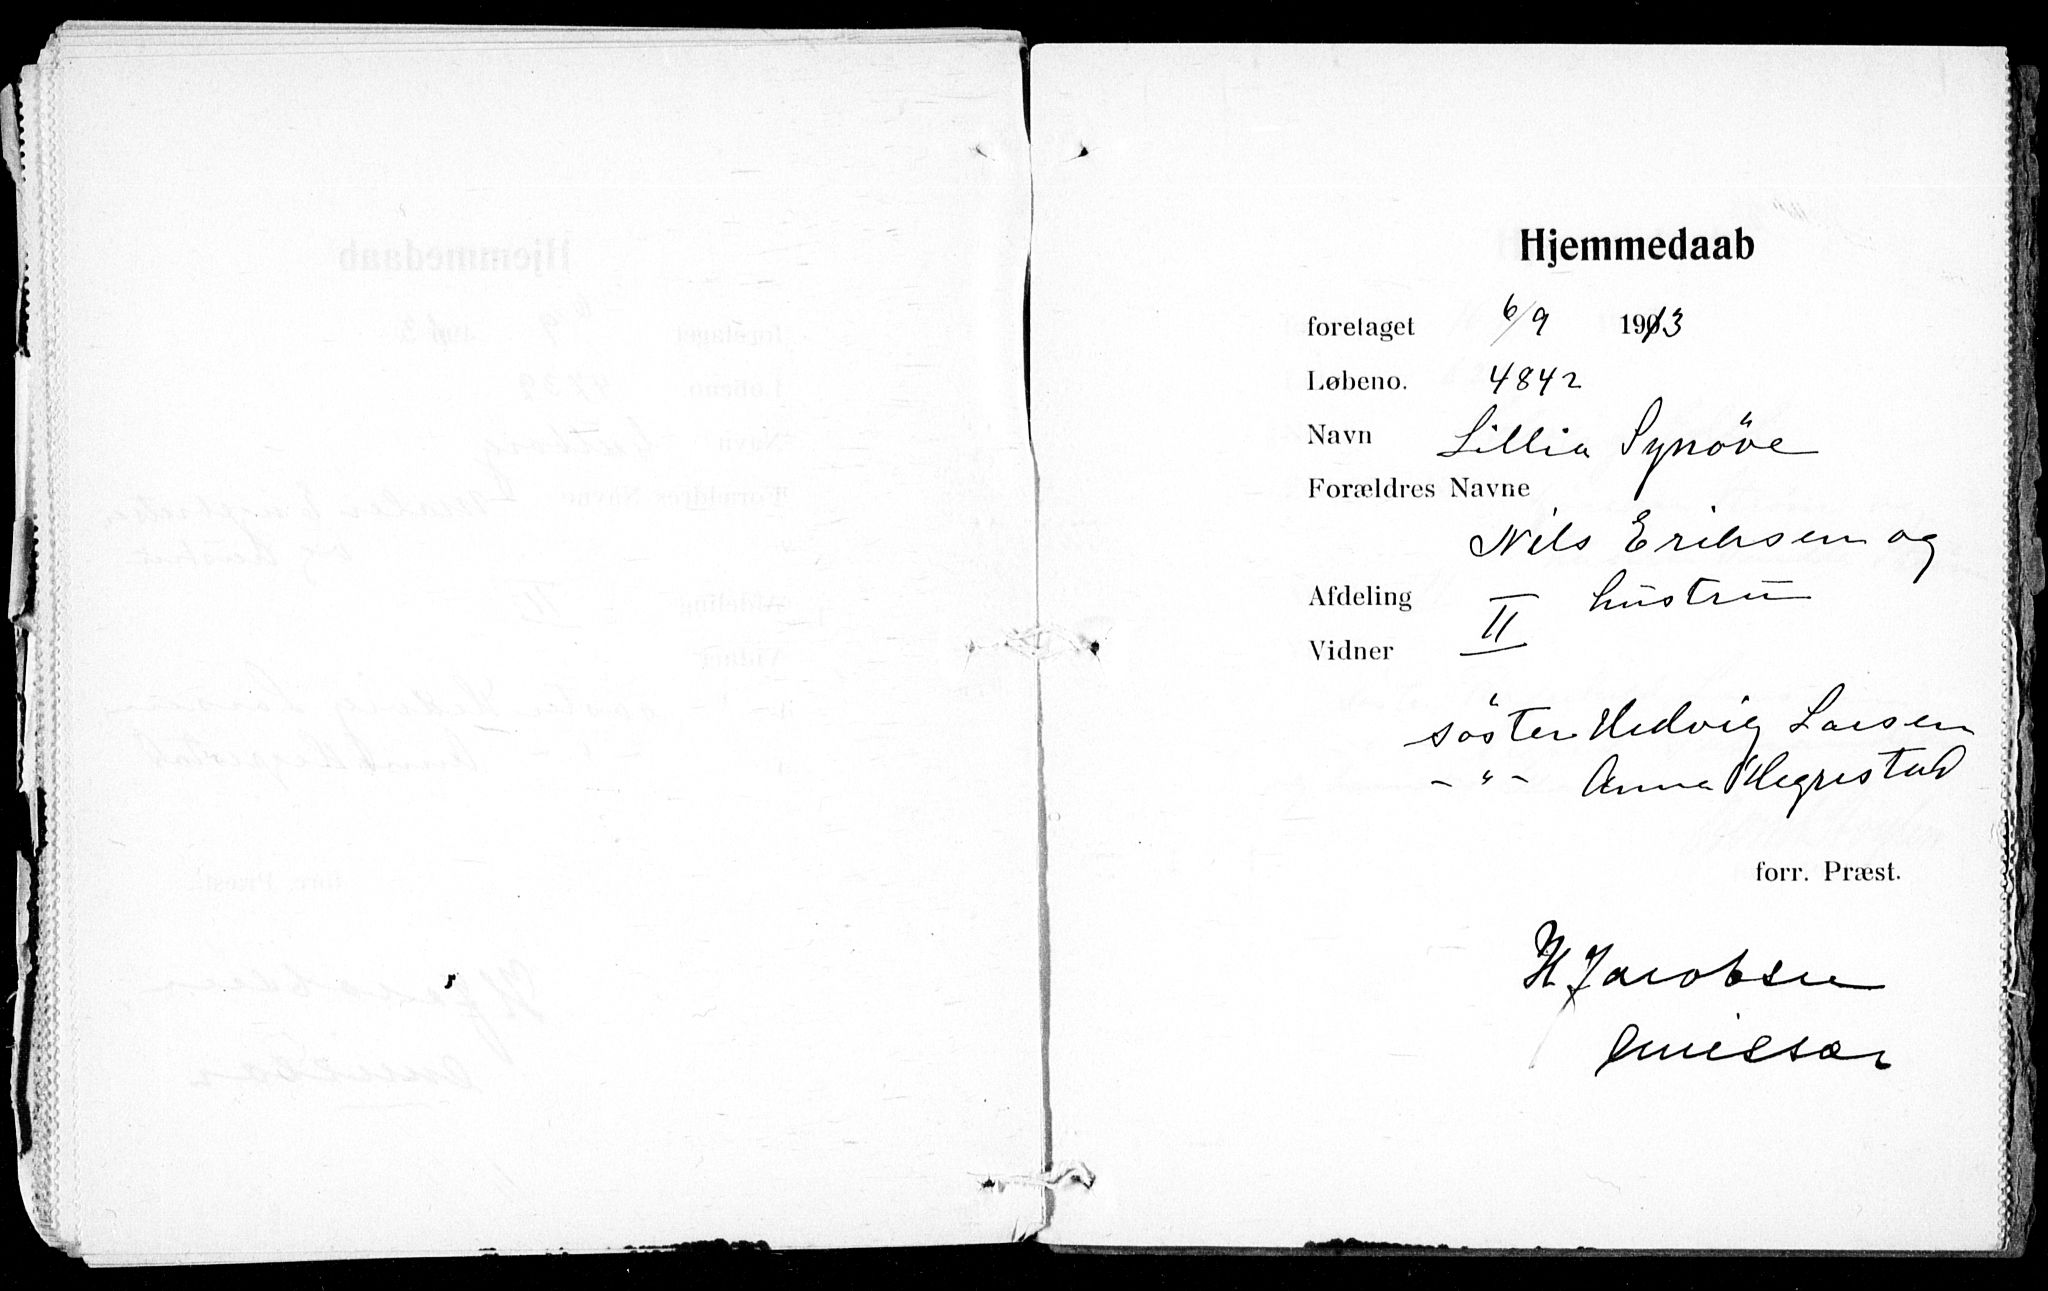 Hjemmedaab
foretaget 6/9 1913
Løbeno. 4842
Navn Lillia Synöve
Forældres Navne
Nils Eriksen og
Afdeling II hustru
Vidner
söster Hedvig Larsen
- " - Anna Hegrestad
forr. Præst.
H Jacobsen